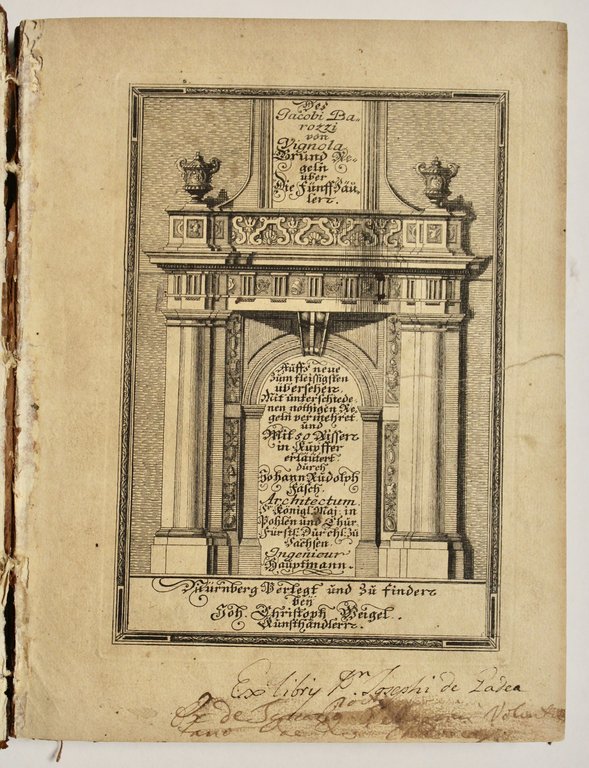 Des
Jacobi Ba,,
rozzi
von
Vignola
Grund Re,,
geln
über
Die Fünff Säu,
len.
Auffs neue
zum fleissigsten
übersehen,
Mit unterschiede,
nen nöthigen Re,
geln vermehret
und
Mit 50 Rissen
in Kupffer
erläutert
durch
Johann Rudolph
Fäsch.
Architectum,
Königl. Maj. in
Pohlen und Chur.
Fürstl. Durchl. zu
Sachsen
Ingenieur
Hauptmann.
Nürnberg Verlegt und zu finden
bey
Joh. Christoph Weigel.
Kunsthändlern.
Ex libry Dn Josephi de
de